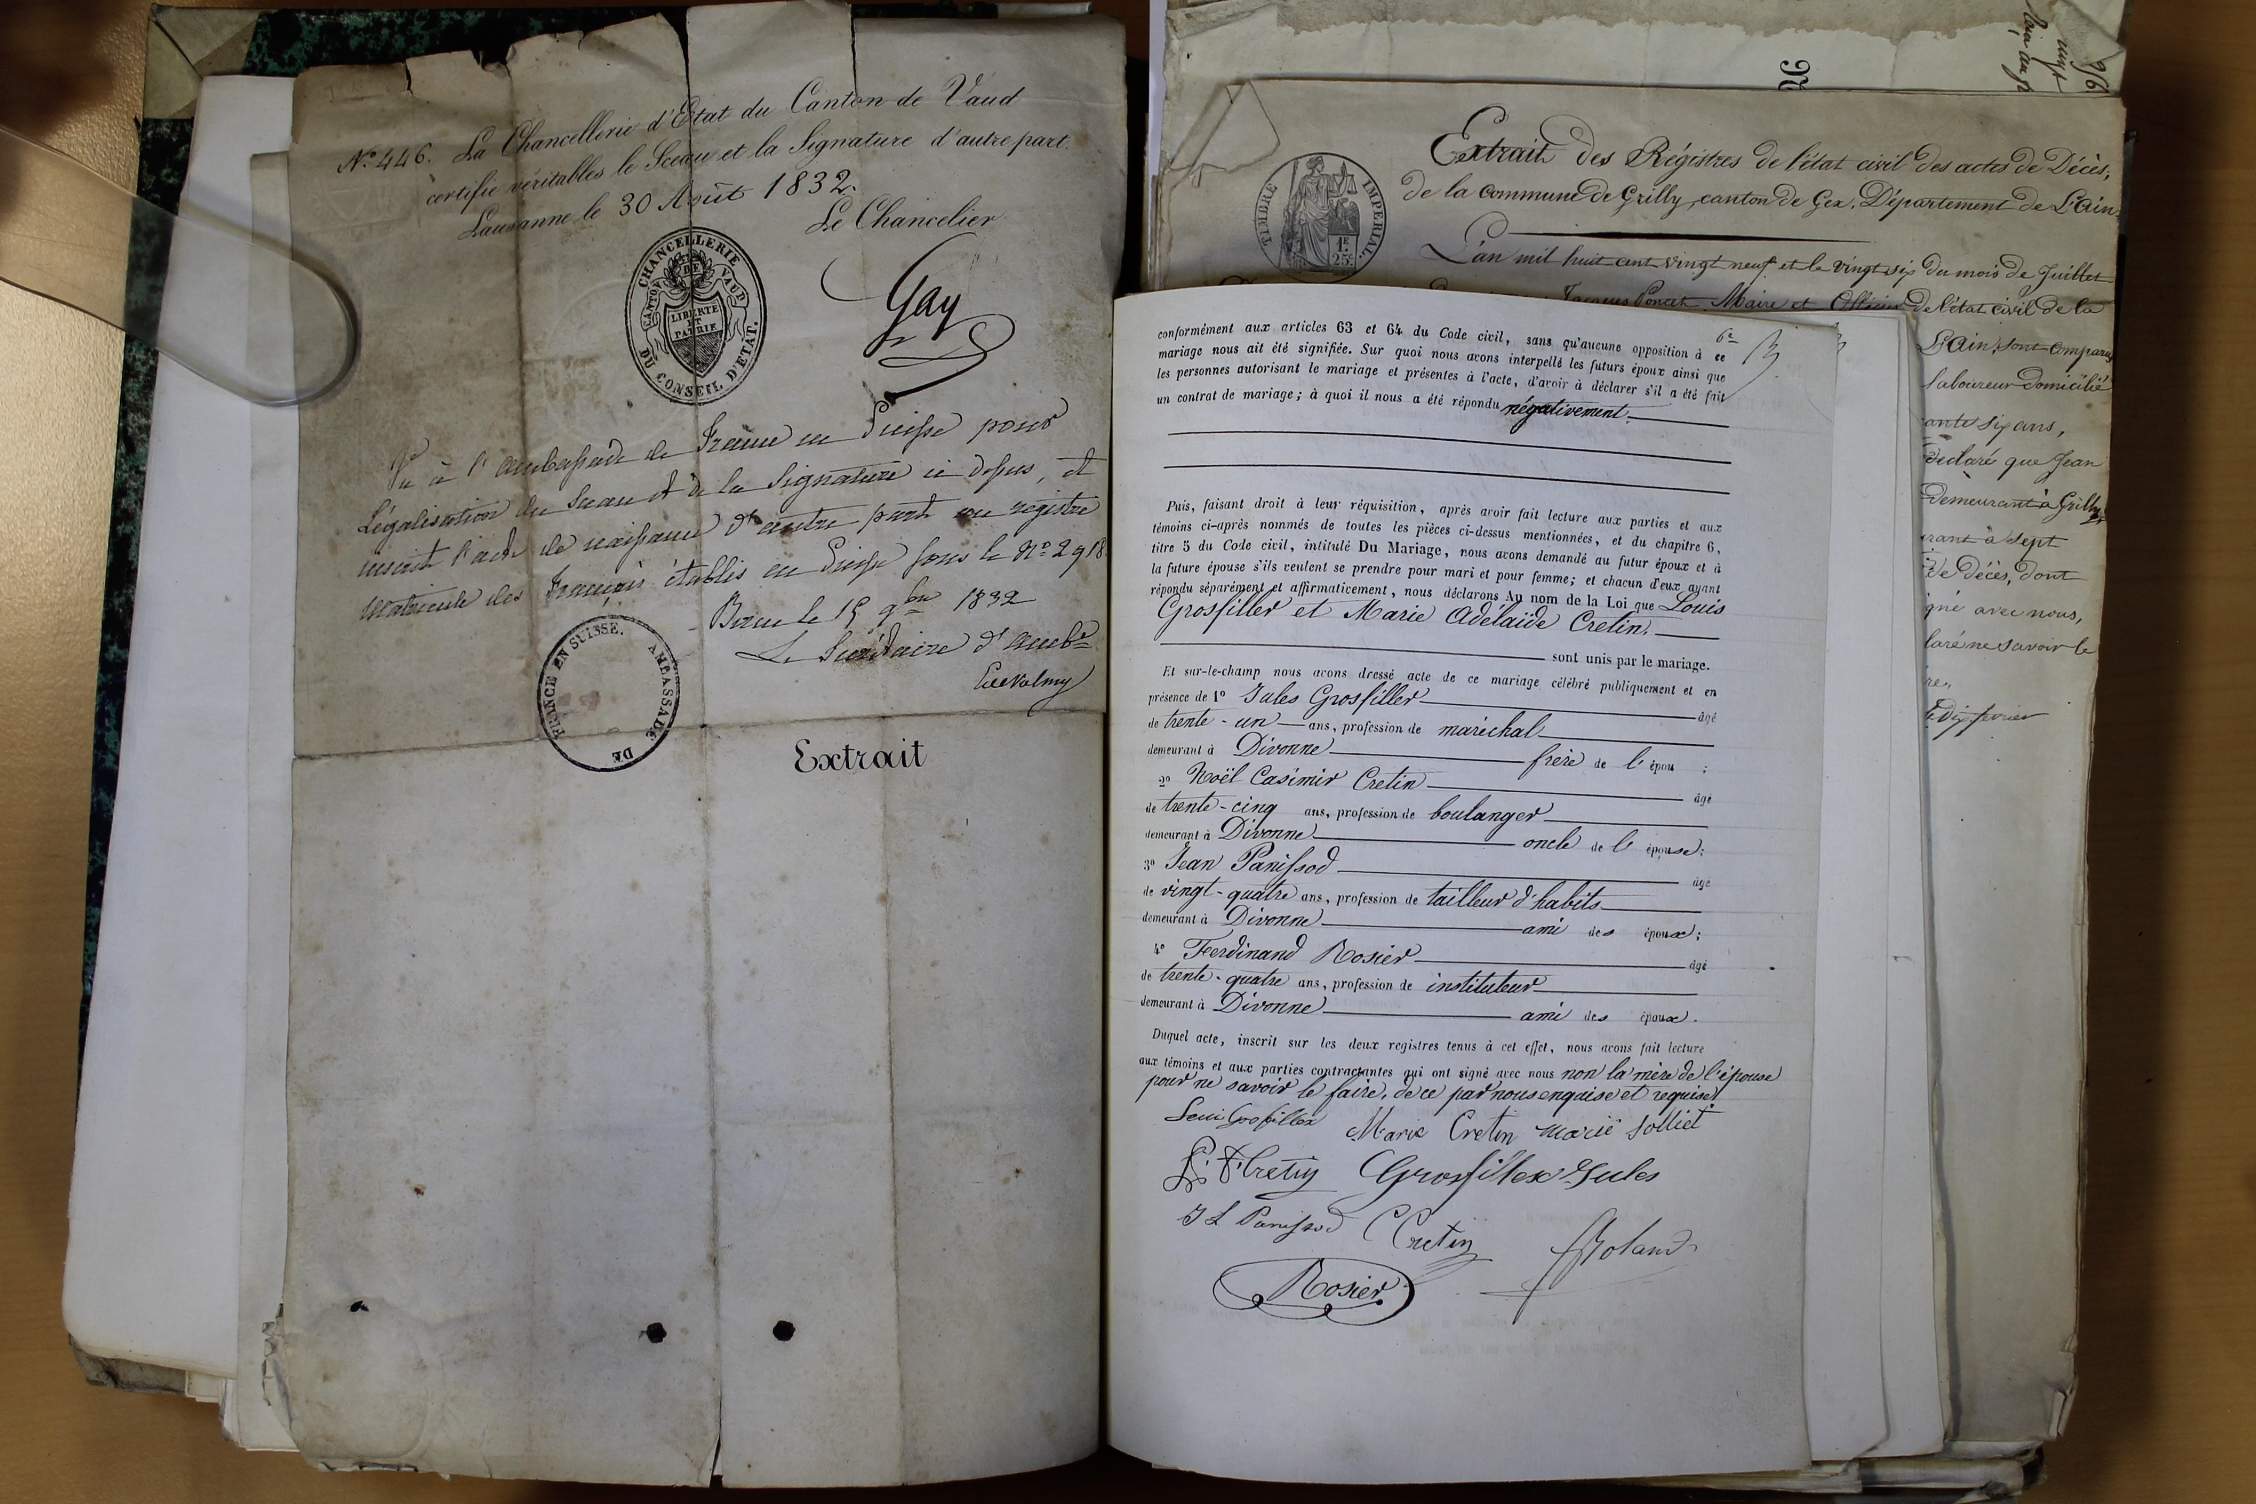 No. 446. La Chancellerie d'Etat du Canton de Vaud
certifie véritables le Sceau et la Signature d'autre part.
Lausanne le 30 Août 1832.
Le Chancelier
CHANCELLERIE DU CONSEIL D'ETAT.
CANTON DE VAUD
LIBERTE
ET
PATRIE
Gay
Vu à l'ambassade de France en Suisse pour
Légalisation du Sceau et de la Signature ci dessus, et
inscrit l'acte de naissance d'autre part au registre
matricule des Français établis en Suisse sous le No. 2918
Berne le 15 9bre 1832
Le Secrétaire d'Ambde
AMBASSADE DE FRANCE EN SUISSE.
Extrait
26
TIMBRE IMPERIAL.
1F.
25c
Extrait des Régistres de l'état civil des actes de Décès,
de la commune de Grilly, canton de Gex, Département de L'Ain,
L'an mil huit cent vingt neuf et le vingt six du mois de Juillet
Jacques Poncet, Maire et Officier de l'état civil de la
L'Ain, sont comparus
laboureur domicilié
ante six ans,
déclaré que Jean
demeurant à Grilly
rant à sept
de décès, dont
gné avec nous,
laré ne savoir le
re,
dix fevrier
6e
conformément aux articles 63 et 64 du Code civil, sans qu'aucune opposition à ce
mariage nous ait été signifiée. Sur quoi nous avons interpellé les futurs époux ainsi que
les personnes autorisant le mariage et présentes à l'acte, d'avoir à déclarer s'il a été fait
un contrat de mariage; à quoi il nous a été répondu négativement.
Puis, faisant droit à leur réquisition, après avoir fait lecture aux parties et aux
témoins ci-après nommés de toutes les pièces ci-dessus mentionnées, et du chapitre 6,
titre 5 du Code civil, intitulé Du Mariage, nous avons demandé au futur époux et à
la future épouse s'ils veulent se prendre pour mari et pour femme; et chacun d'eux ayant
répondu séparément et affirmativement, nous déclarons Au nom de la Loi que Louis
Grosfiller et Marie Adélaïde Cretin.
sont unis par le mariage.
Et sur-le-champ nous avons dressé acte de ce mariage célébré publiquement et en
présence de 1° Jules Grosfiller âgé
de trente-un ans, profession de maréchal
demeurant à Divonne frère de l'épou ;
2° Noël Casimir Cretin âgé
de trente-cinq ans, profession de boulanger
demeurant à Divonne oncle de l'épouse;
3° Jean Panissod âgé
de vingt-quatre ans, profession de tailleur d'habits
demeurant à Divonne ami des époux;
4° Ferdinand Rosier âgé
de trente-quatre ans, profession de instituteur
demeurant à Divonne ami des époux.
Duquel acte, inscrit sur les deux registres tenus à cet effet, nous avons fait lecture
aux témoins et aux parties contractantes qui ont signé avec nous non la mère de l'épouse
pour ne savoir le faire, de ce par nous enquise et requise.
Louis Grosfillex Marie Cretin Marie Solliet
Cretin Grosfillex Jules
J L Panissod C Cretin Roland
Rosier